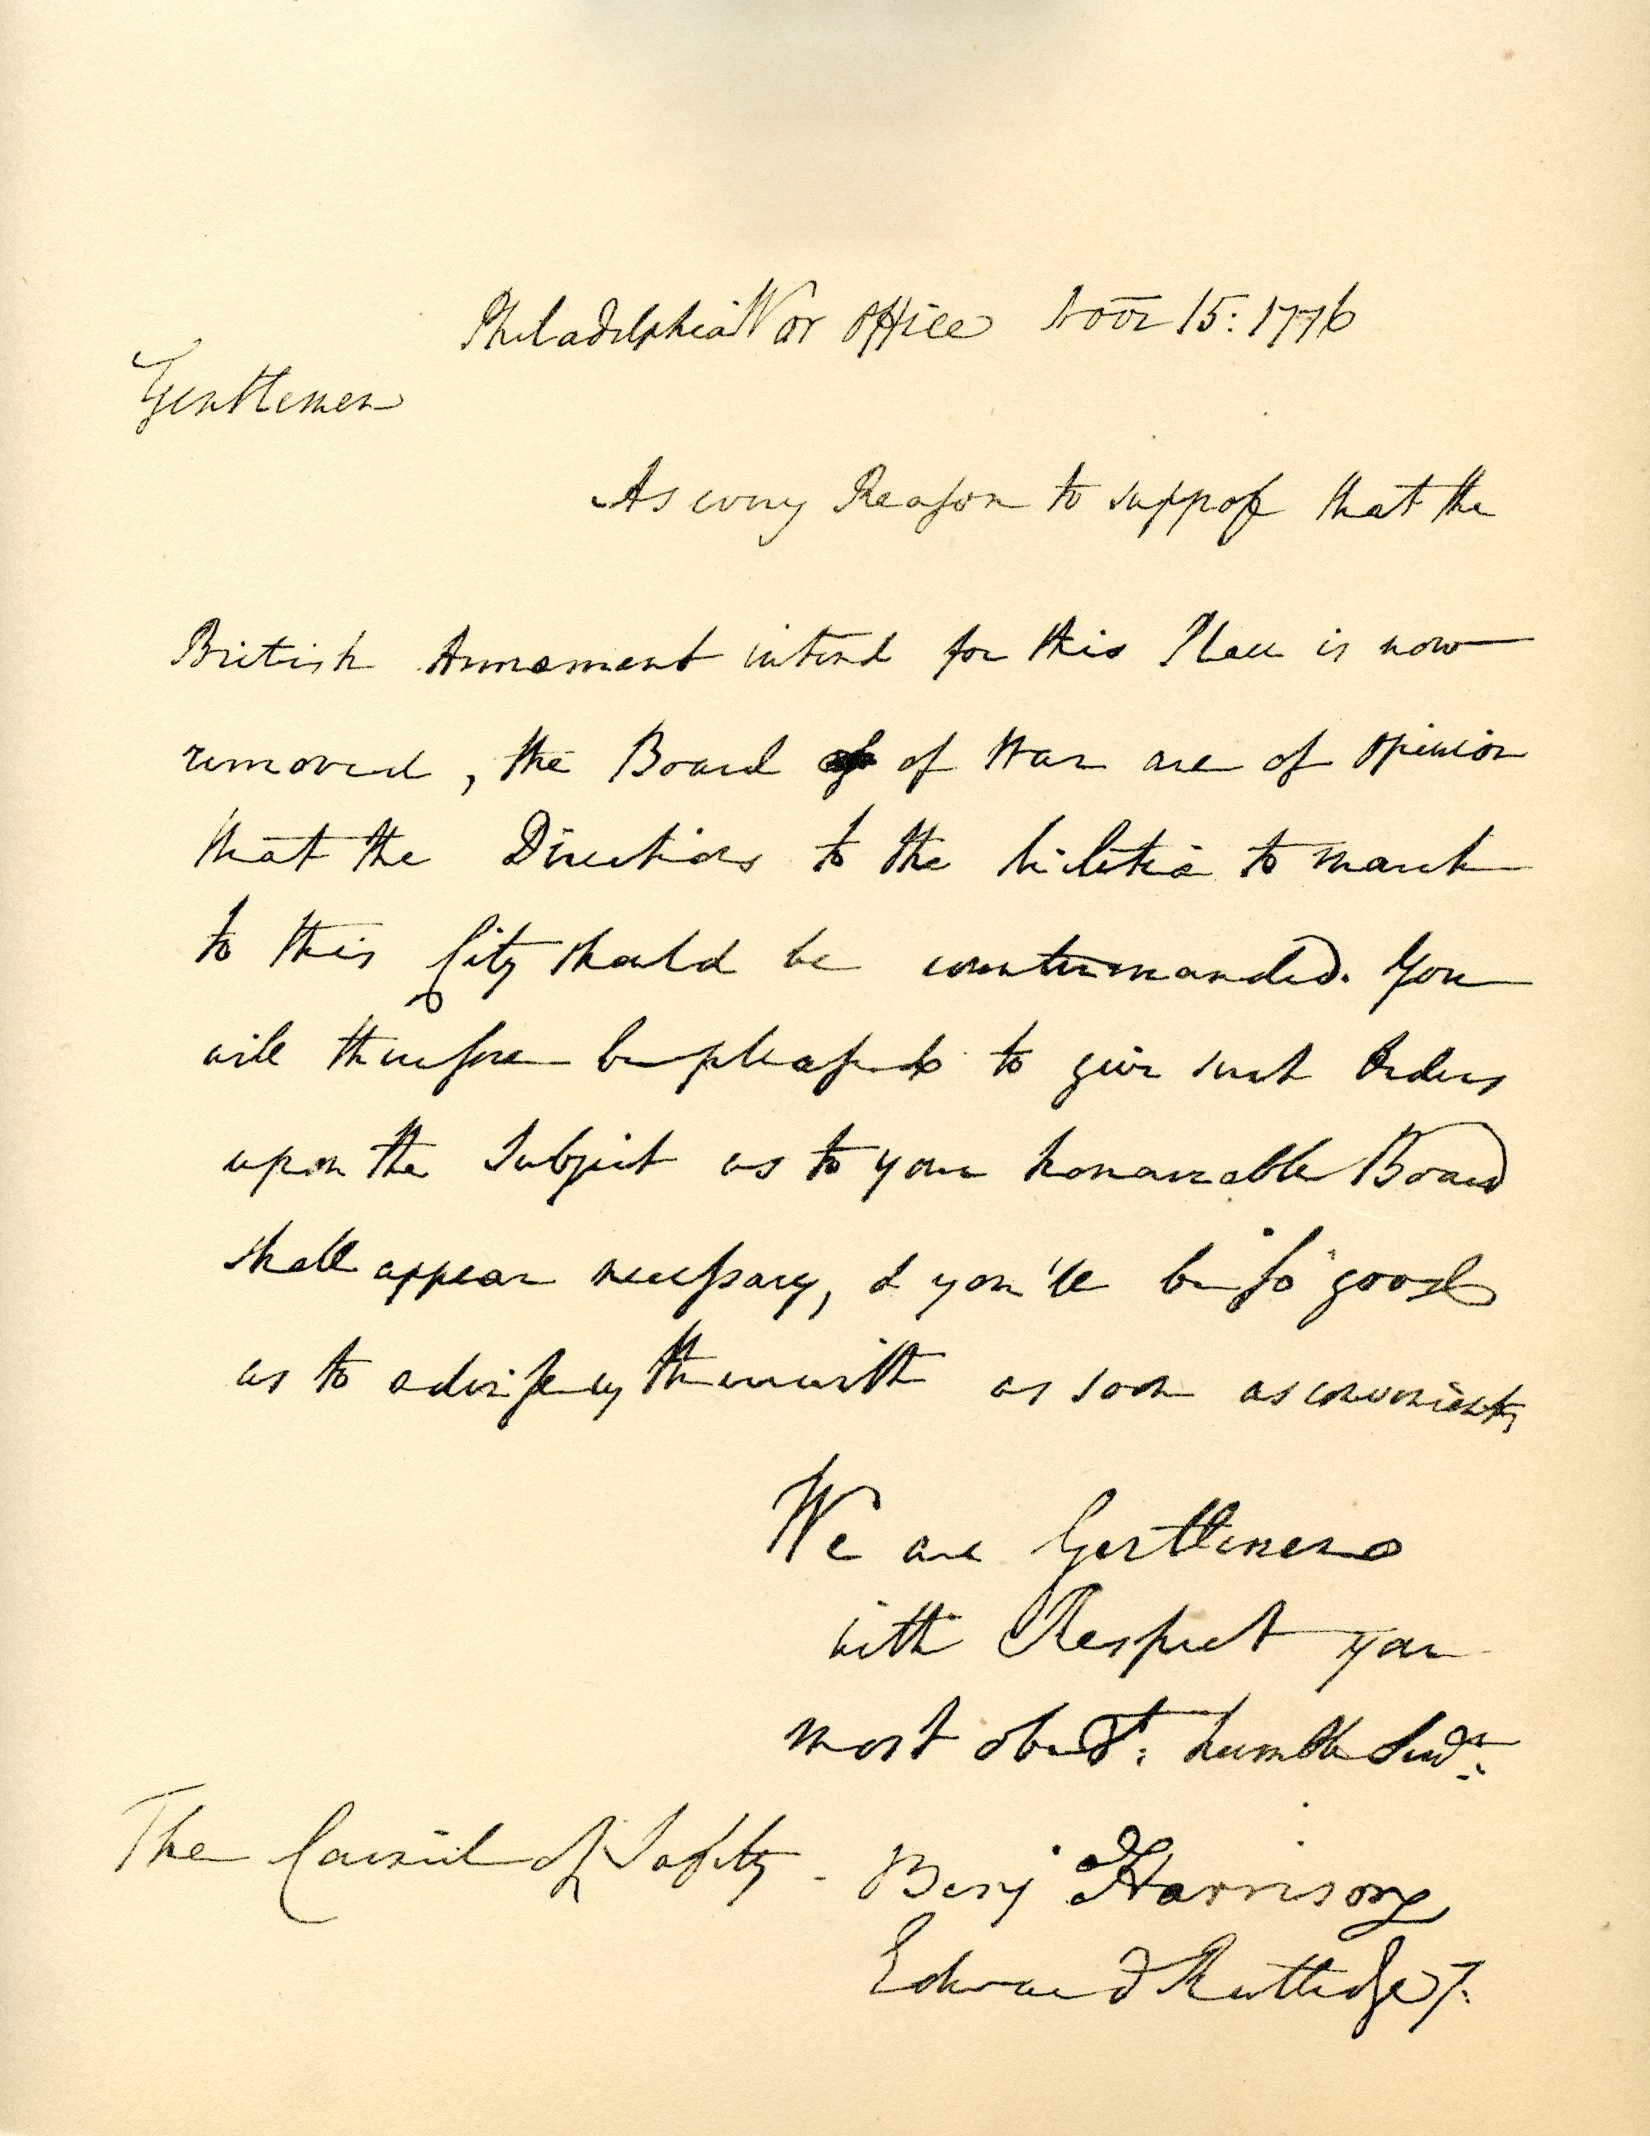 Philadelphia War Office Novr 15: 1776
Gentlemen
As every Reason to suppose that the
British Armament intend for this Place is now
removed, the Board of War are of opinion
that the Directions to the Militia to march
to this City should be countermanded. You
will therefore be pleased to give such Orders
upon the Subject as to your honourable Board
shall appear necessary, & you'll be so good
as to advise us therewith as soon as convenient,
We are Gentlemen
with Respect your
most obedt: humble Servts:
The Council of Safety - Benj Harrison
Edward Rutledge